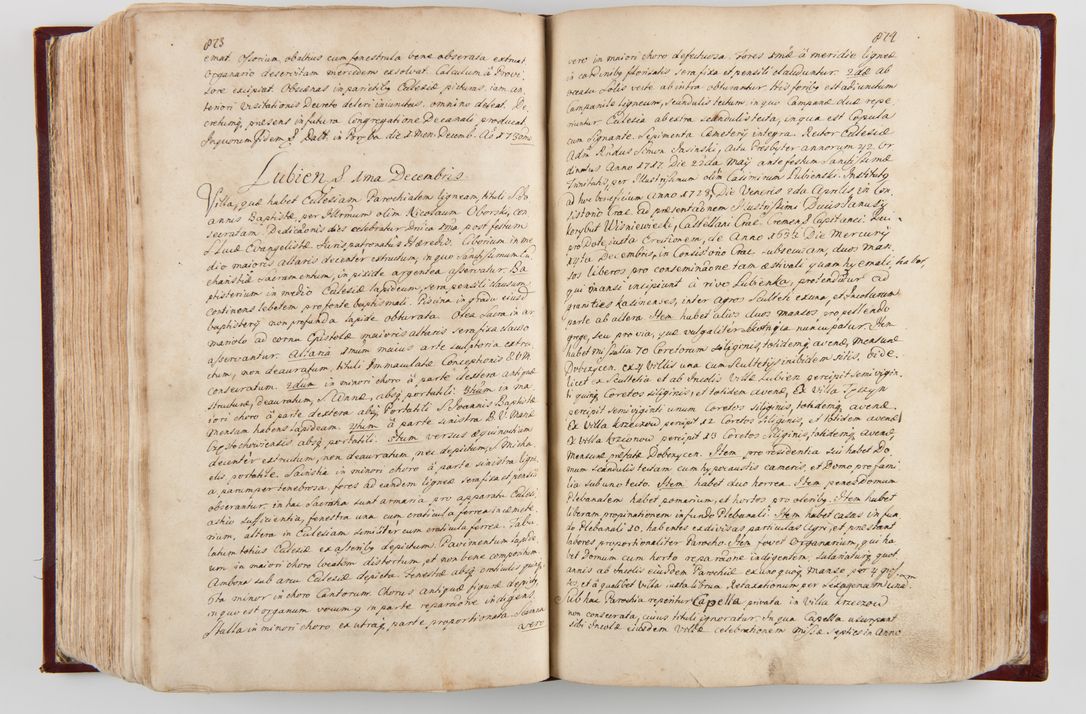 873
emat. Ostiorum, obathus cum fenestrula bene obserata extruat
Organario deservitam mercedem exsolvat. Calculum à Provi,
sore excipiat. Obscænas in parietibꝰ Ecclesiæ picturas, iam an,
teriori Visitationis Decreto deleri iniunctas, omnino deleat. De,
cretumq; præsens in futura Congregatione Decanali producat.
In quorum fidem &. Datt. in die 1 Men. Decemb. Aõ 1730mo
Lubien &. 1ma Decembris.
Villa, quæ habet Ecclesiam Parochialem ligneam, tituli S. Jo,
annis Baptistæ, per Illrmum olim Nicolaum Oborski, con,
secratam. Dedicaõnis dies celebratur Dnica 1ma post festum
S. Lucæ Evangelistæ. Juris patronatus Hæredis. Ciborium in me,
dio maioris altaris decenter extructum, in quo Sanctissimum Eu,
charistiæ Sacramentum, in pixide argentea asservatur. Ba,
ptisterium in medio Ecclesiæ lapideum, sera pensili clausum,
continens lebetem pro fonte baptismali. Piscina in gradu eiusd.
baptisterij non profunda lapide obturata. Olea Sacra in ar,
mariolo ad cornu Epistolæ maioris altaris sera fixa clauso
asservantur. Altaria 1mum maius arte sculptoria extru,
ctum, non deauratum, tituli Immaculatæ Conceptionis B.V.M.
consecratum. 2dum in minori choro à parte dextera antiquæ
structuræ, deauratum, S. Annæ, absq; portatili. 3tium in ma,
iori choro à parte dextera absq; Portatili S. Joannis Baptistæ
Mensam habens lapideam. 4tum à parte sinistra B.V. Mariæ
Częstochowiensis absq; portatili. 5tum versus æquinoctium
decenter extructum, non deauratum, nec depictum, S. Micha,
elis, portatile. Sacristia in minori choro à parte sinistra ligne,
a parumper tenebrosa, fores ad eandem ligneæ sera fixa et pensili
obserantur. in hac Sacristia sunt armaria pro apparatu Ecclesi,
astico sufficientia, fenestra una cum craticula ferrea in cæmete,
rium, altera in Ecclesiam similiter cum craticula ferrea. Tabu,
latum totius Ecclesiæ ex asseribꝰ depictum. Pavimentum lapide,
um in maiori choro locatum distortum, et non bene compositum.
Ambona sub arcu Ecclesiæ depicta. Fenestræ absq; orbiculis
6ta minor in choro Cantorum. Chorus antiquæ figuræ depictꝰ,
in quo est organum vocum 9 in parte reparaõne indigens.
Stalla in minori choro ex utraq; parte proportionata. Scamna
vero

874
vero in maiori choro defectuosa. Fores 1mæ à meridie ligneæ
in cardinibꝰ florisatis sera fixa et pensili clauduntur. 2dæ ab
occasu Solis vecte ab intra obturantur. His foribꝰ est adiunctum
Campanile ligneum, scandulis tectum, in quo Campanæ duæ repe,
riuntur. Ecclesia ab extra scandulis tecta, in qua est Cupula
cum Signante. Sepimenta Cæmeterij integra. Rector Ecclesiæ
Admꝰ Rndus Simon Jasinski, actu Presbyter annorum 42. Or
dinatus Anno 1717. Die 22da Maij ante festum Sanctissimæ
Trinitatis, per Illustrissimum olim Casimirum Łubienski. Institutꝰ
ad hoc beneficium anno 1728, Die Veneris 2da Aprilis, in Con,
sistorio Crac. ad præsentaõnem Illustrissimi Ducis Janusz
Korybut Wisniowiecki, Castellani Crac. Cremen & Capitanei.
pro Dote juxta Erectionem, de Anno 1532. Die Mercurij
Decembris, in Consistorio Crac. subsecutam, duos man,
sos liberos, pro conseminaõne tam æstivali quam hyemali, habet,
qui mansi incipiunt à rivo Lubienka, protenditur ad
granities Kasinenses, inter agros Sculteti ex una, et Incolarum
parte ab altera. Item habet alios duos mansos pro pellendo
grege, seu pro via, quæ vulgaliter nuncupatur. Item
habet missalia 70 Coretorum siliginis, totidemq; avenæ, mensuræ
Dobczycen. ex 4 villis una cum Scultetijs inibidem sitis, vide,
licet ex Scultetia et ab Incolis Villæ Lubien percipit semivigin,
ti quinq; Coretos siliginis, et totidem avenæ, Ex Villa Tęczyn
percipit semiviginti unum Coretos siliginis, totidemq; avenæ.
Ex Villa Krzeczow percipit 12 Coretos siliginis, et totidem avenæ,
Ex Villa Krzconow percipit 13 Coretos siliginis, totidemq; avenæ,
Mensuræ præfatæ Dobczycen. Item pro residentia sui habet Do,
mum scandulis tectam cum hypocaustis cameris, et Domo pro fami,
lia sub uno tecto. Item habet duo horrea. Item penes Domum
Plebanalem habet pomarium, et hortos pro oleribꝰ. Item habet
liberam propinationem in fundo Plebanali. Item habet casas in fun,
do Plebanali 10. habentes ex divisas particulas Agri, et præstant
labores proportionaliter Parocho. Item fovet Organarium, qui ha,
bet domum cum horto reparaõne indigentem. Salariatur quot
annis ab Incolis eiusdem Parochiæ ex uno quoq; Manso per 4 gros,
sos, et à qualibet Villa iuxta librum Retaxationum per sexagenam unam
Sub hac Parochia reperitur Capella privata in Villa Krzeczow
non consecrata, cuius tituli ignoratur. In qua Capella usurpant
sibi Incolæ eiusdem Villæ celebrationem missæ septies in Anno